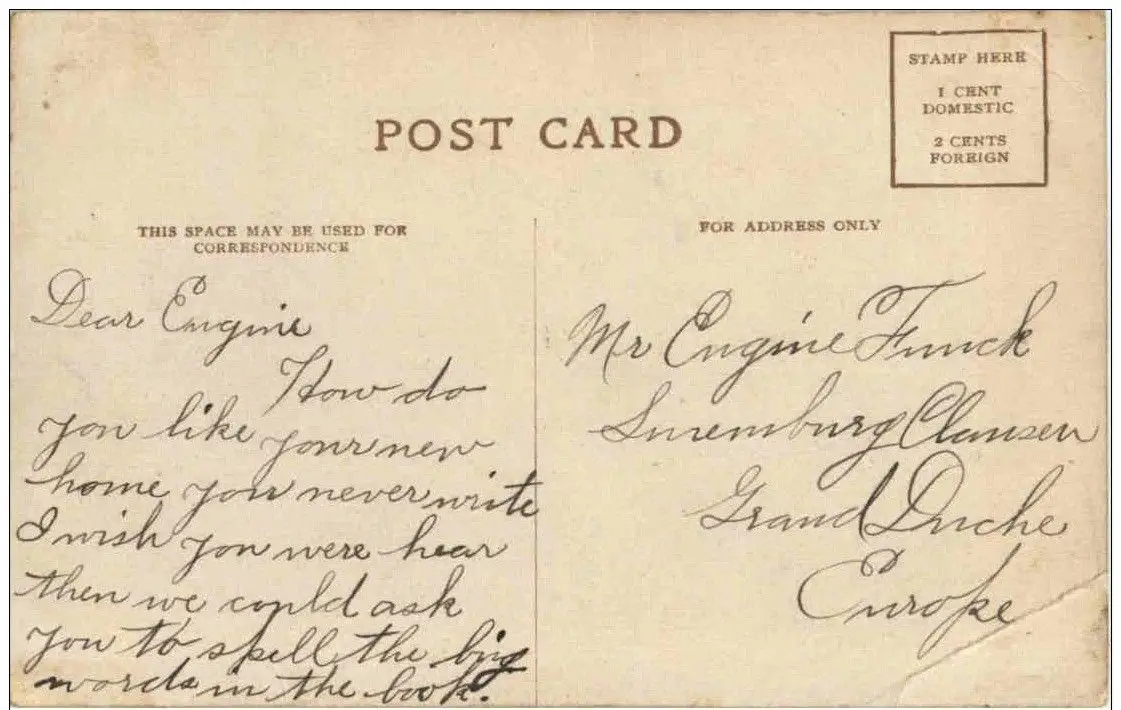 POST CARD
STAMP HERE
1 CENT
DOMESTIC
2 CENTS
FOREIGN
THIS SPACE MAY BE USED FOR
CORRESPONDENCE
Dear Eugine
How do
you like your new
home you never write
I wish you were hear
then we could ask
you to spell the big
words in the book.
FOR ADDRESS ONLY
Mr Eugine Funck
Luxemburg Clausen
Grand Duche
Europe